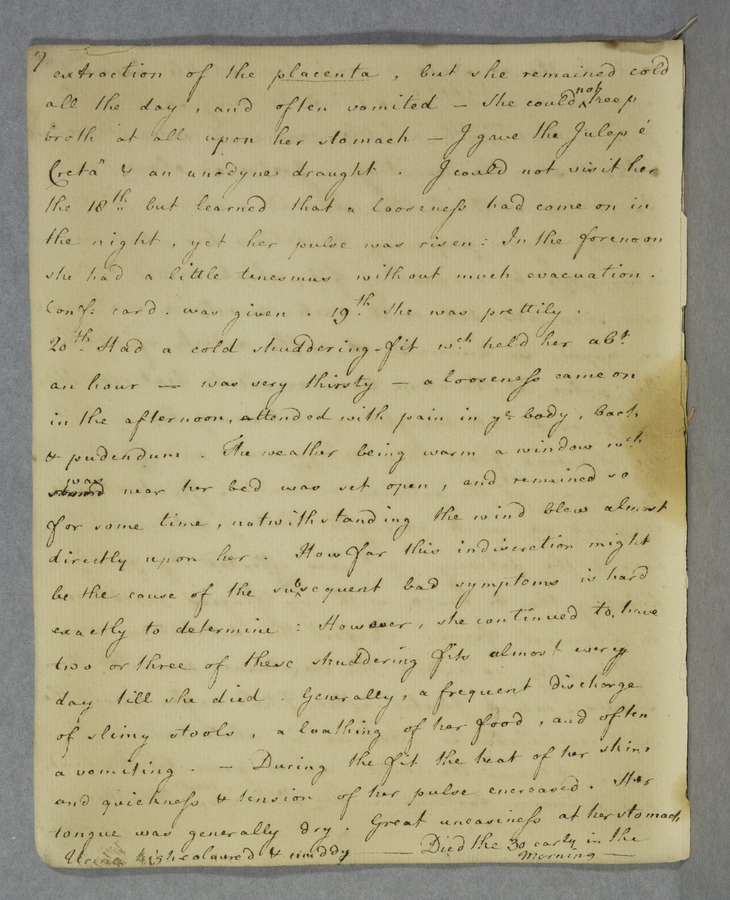 7
extraction of the placenta, but she remained cold
all the day, and often vomited — She could not keep
broth at all upon her stomach — I gave the Julep è
Cretâ & an anodyne draught. I could not visit her
the 18th but learned that a looseness had come on in
the night, yet her pulse was risen: In the forenoon
she had a little tenesmus without much evacuation.
Conf: card. was given. 19th She was prettily.
20th Had a cold shuddering-fit wch held her abt
an hour — was very thirsty — a looseness came on
in the afternoon, attended with pain in ye body, back
& pudendum. The weather being warm a window wch
was near her bed was set open, and remained so
for some time, notwithstanding the wind blew almost
directly upon her. How far this indiscretion might
be the cause of the subsequent bad symptoms is hard
exactly to determine: However, she continued to have
two or three of these shuddering fits almost every
day till she died. Generally, a frequent discharge
of slimy stools, a loathing of her food, and often
a vomiting. — During the fit the heat of her skin,
and quickness & tension of her pulse encreased. Her
tongue was generally dry. Great uneasiness at her stomach
Urine high coloured & muddy — Died the 30 early in the
Morning —